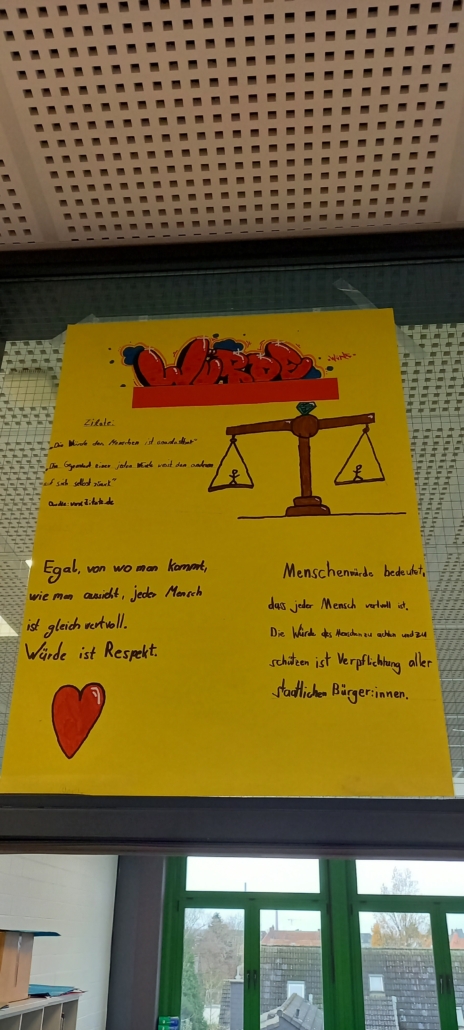 WÜRDE
Zitate:
„Die Würde des Menschen ist unantastbar"
einer jeden Würde den anderen
auf sich selbst zurück"
Quelle: www.zitate.de
Egal, von wo man kommt,
wie man aussieht, jeder Mensch
ist gleich wertvoll.
Würde ist Respekt.
Menschenwürde bedeutet,
dass jeder Mensch wertvoll ist.
Die Würde des Menschen zu achten und zu
schützen ist Verpflichtung aller
staatlichen Bürger:innen.